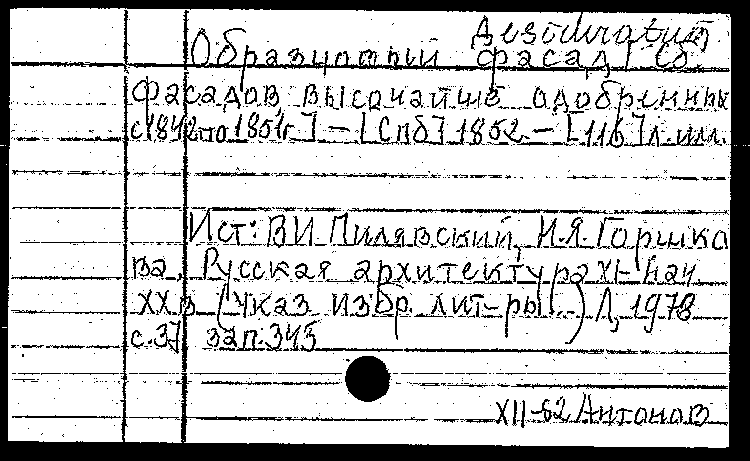 Desideratum
Образцовый фасад [Сб.
фасадов высочайше одобренных
с 1842 по 1851г.] – [Спб] 1852. – [116] л. илл.
Ист: В.И. Пилявский, Н.Я. Горшко
ва, Русская архитектура XI – нач.
XX в (Указ избр. лит-ры..) Л, 1978
с. 37 зап. 345
XII-82 Антонов